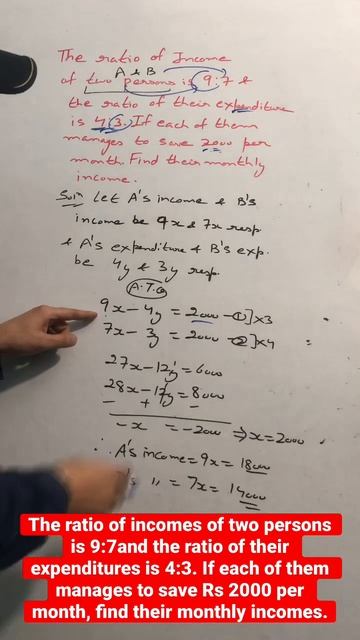 The ratio of Income
A & B
of two persons is 9:7 &
the ratio of their expenditure
is 4:3. If each of them
manages to save 2000 per
month. Find their monthly
income.
Soln Let A's income & B's
income be 9x & 7x resp
& A's expenditure & B's exp.
be 4y & 3y resp.
A.T.Q
9x - 4y = 2000 - ①] ×3
7x - 3y = 2000 - ②] ×4
27x - 12y = 6000
28x - 12y = 8000
- + -
-x = -2000 ⇒ x = 2000
∴ A's income = 9x = 18000
's " = 7x = 14000
The ratio of incomes of two persons
is 9:7and the ratio of their
expenditures is 4:3. If each of them
manages to save Rs 2000 per
month, find their monthly incomes.